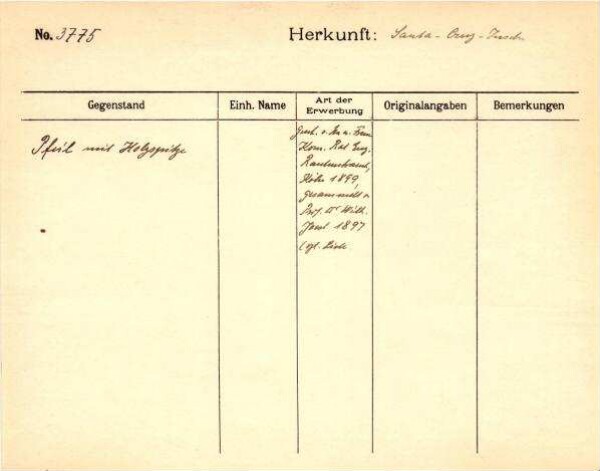 No. 3775 Herkunft: Santa-Cruz-Inseln
Gegenstand Einh. Name Art der Erwerbung Originalangaben Bemerkungen
Pfeil mit Holzspitze
Gesch. v. Hrn u. Frau
Kom. Rat Eug.
Rautenstrauch,
Köln 1899,
gesammelt v.
Prof. Dr Wilh.
Joest 1897
(vgl. Liste